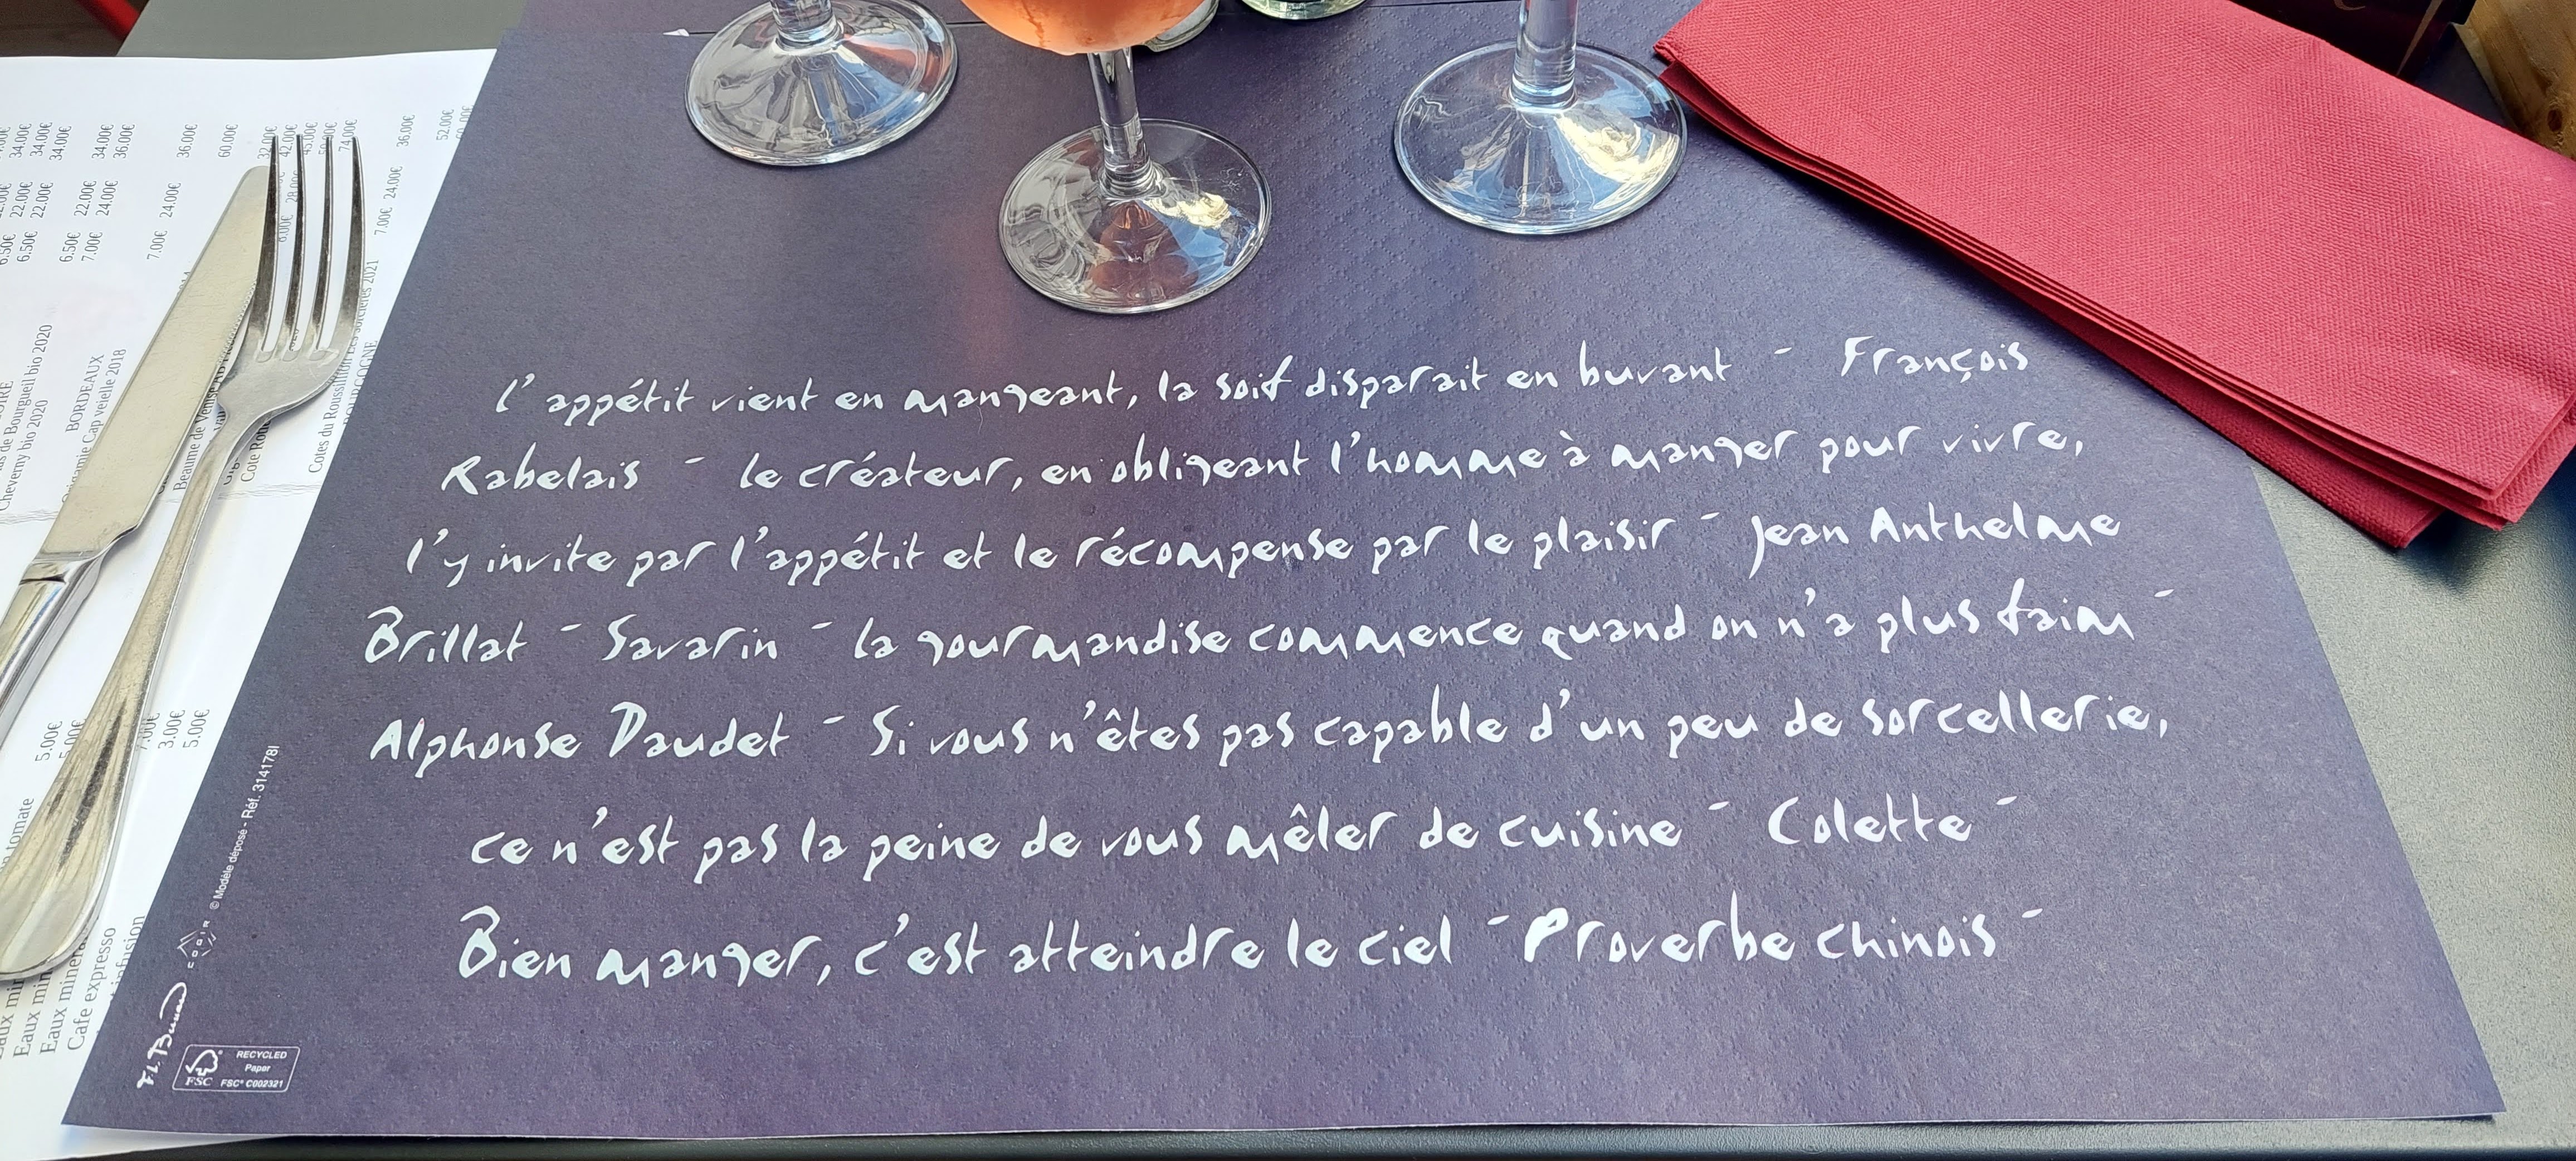 l'appétit vient en mangeant, la soif disparait en buvant - François
Rabelais - le créateur, en obligeant l'homme à manger pour vivre,
l'y invite par l'appétit et le récompense par le plaisir - Jean Anthelme
Brillat - Savarin - la gourmandise commence quand on n'a plus faim -
Alphonse Daudet - Si vous n'êtes pas capable d'un peu de sorcellerie,
ce n'est pas la peine de vous mêler de cuisine - Colette -
Bien manger, c'est atteindre le ciel - Proverbe chinois -
© Modèle déposé - Réf. 314178I
COGIR
FSC
RECYCLED
Paper
FSC® C002321
34.00€ 34.00€ 34.00€ 34.00€ 36.00€ 36.00€ 60.00€ 32.00€ 42.00€ 74.00€ 36.00€ 52.00€
22.00€ 22.00€ 22.00€ 24.00€ 24.00€ 28.00€ 24.00€
6.50€ 6.50€ 6.50€ 7.00€ 7.00€ 8.00€ 7.00€
de Bourgueil bio 2020
Cheverny bio 2020
BORDEAUX
Cap veielle 2018
Beaume de Venise
Cote
Cotes du Roussillon Les sorcieres 2021
5.00€
5.00€
7.00€
3.00€
5.00€
tomate
Eaux
Eaux
Eaux
Cafe expresso
infusion